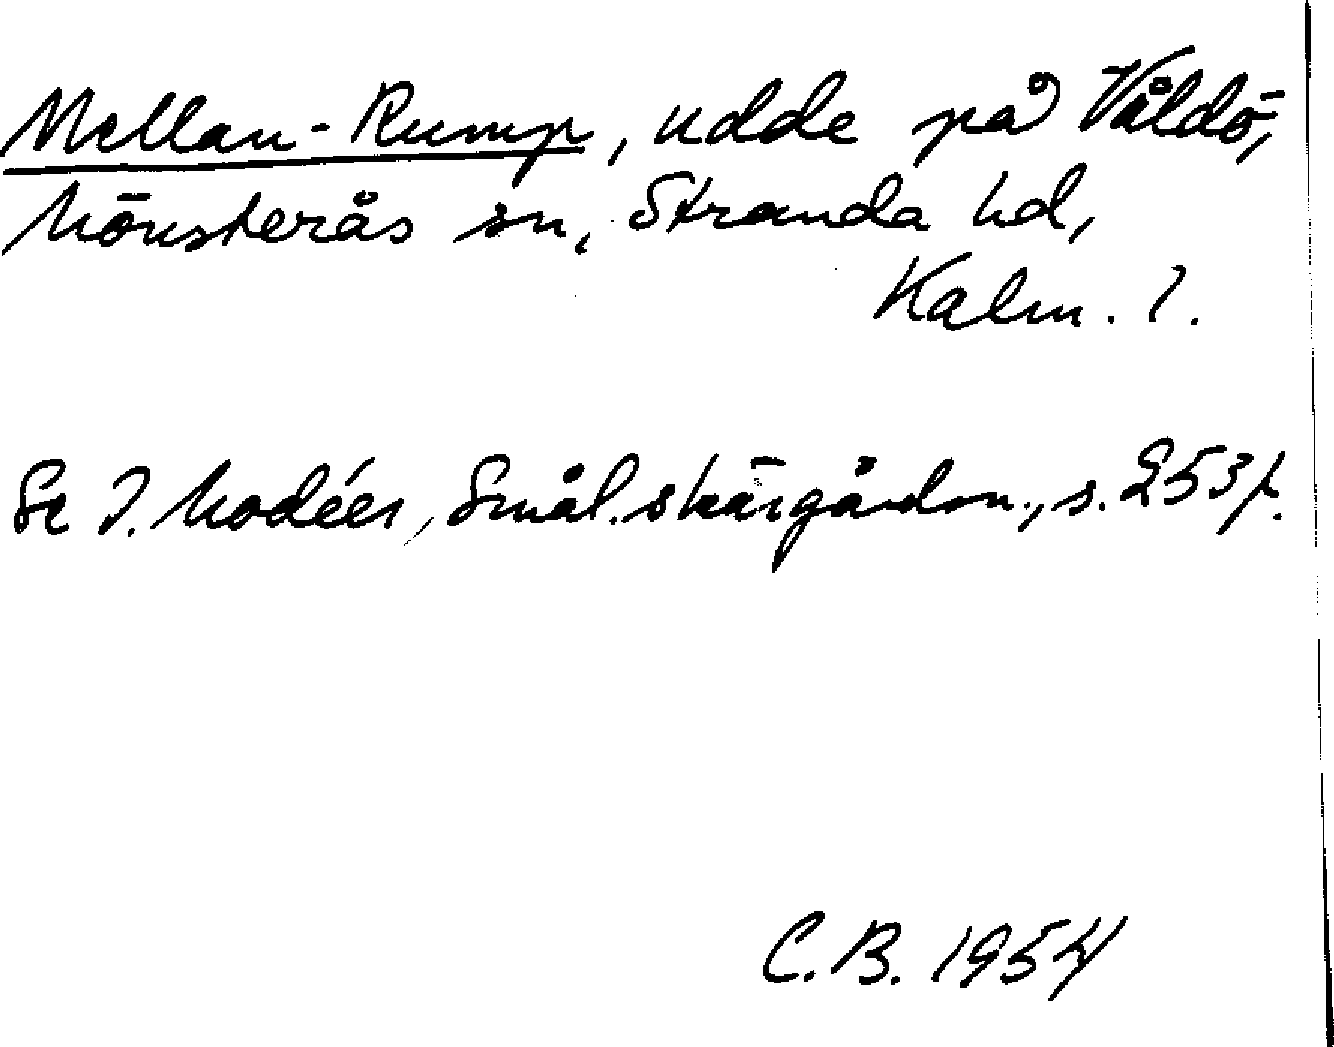 Mellan-Rump, udde på Våldö,
Mönsterås sn, Stranda hd,
Kalm. l.
Se I. Modéer, Smål. skärgårdsn., s. 253 f.
C.B. 1954